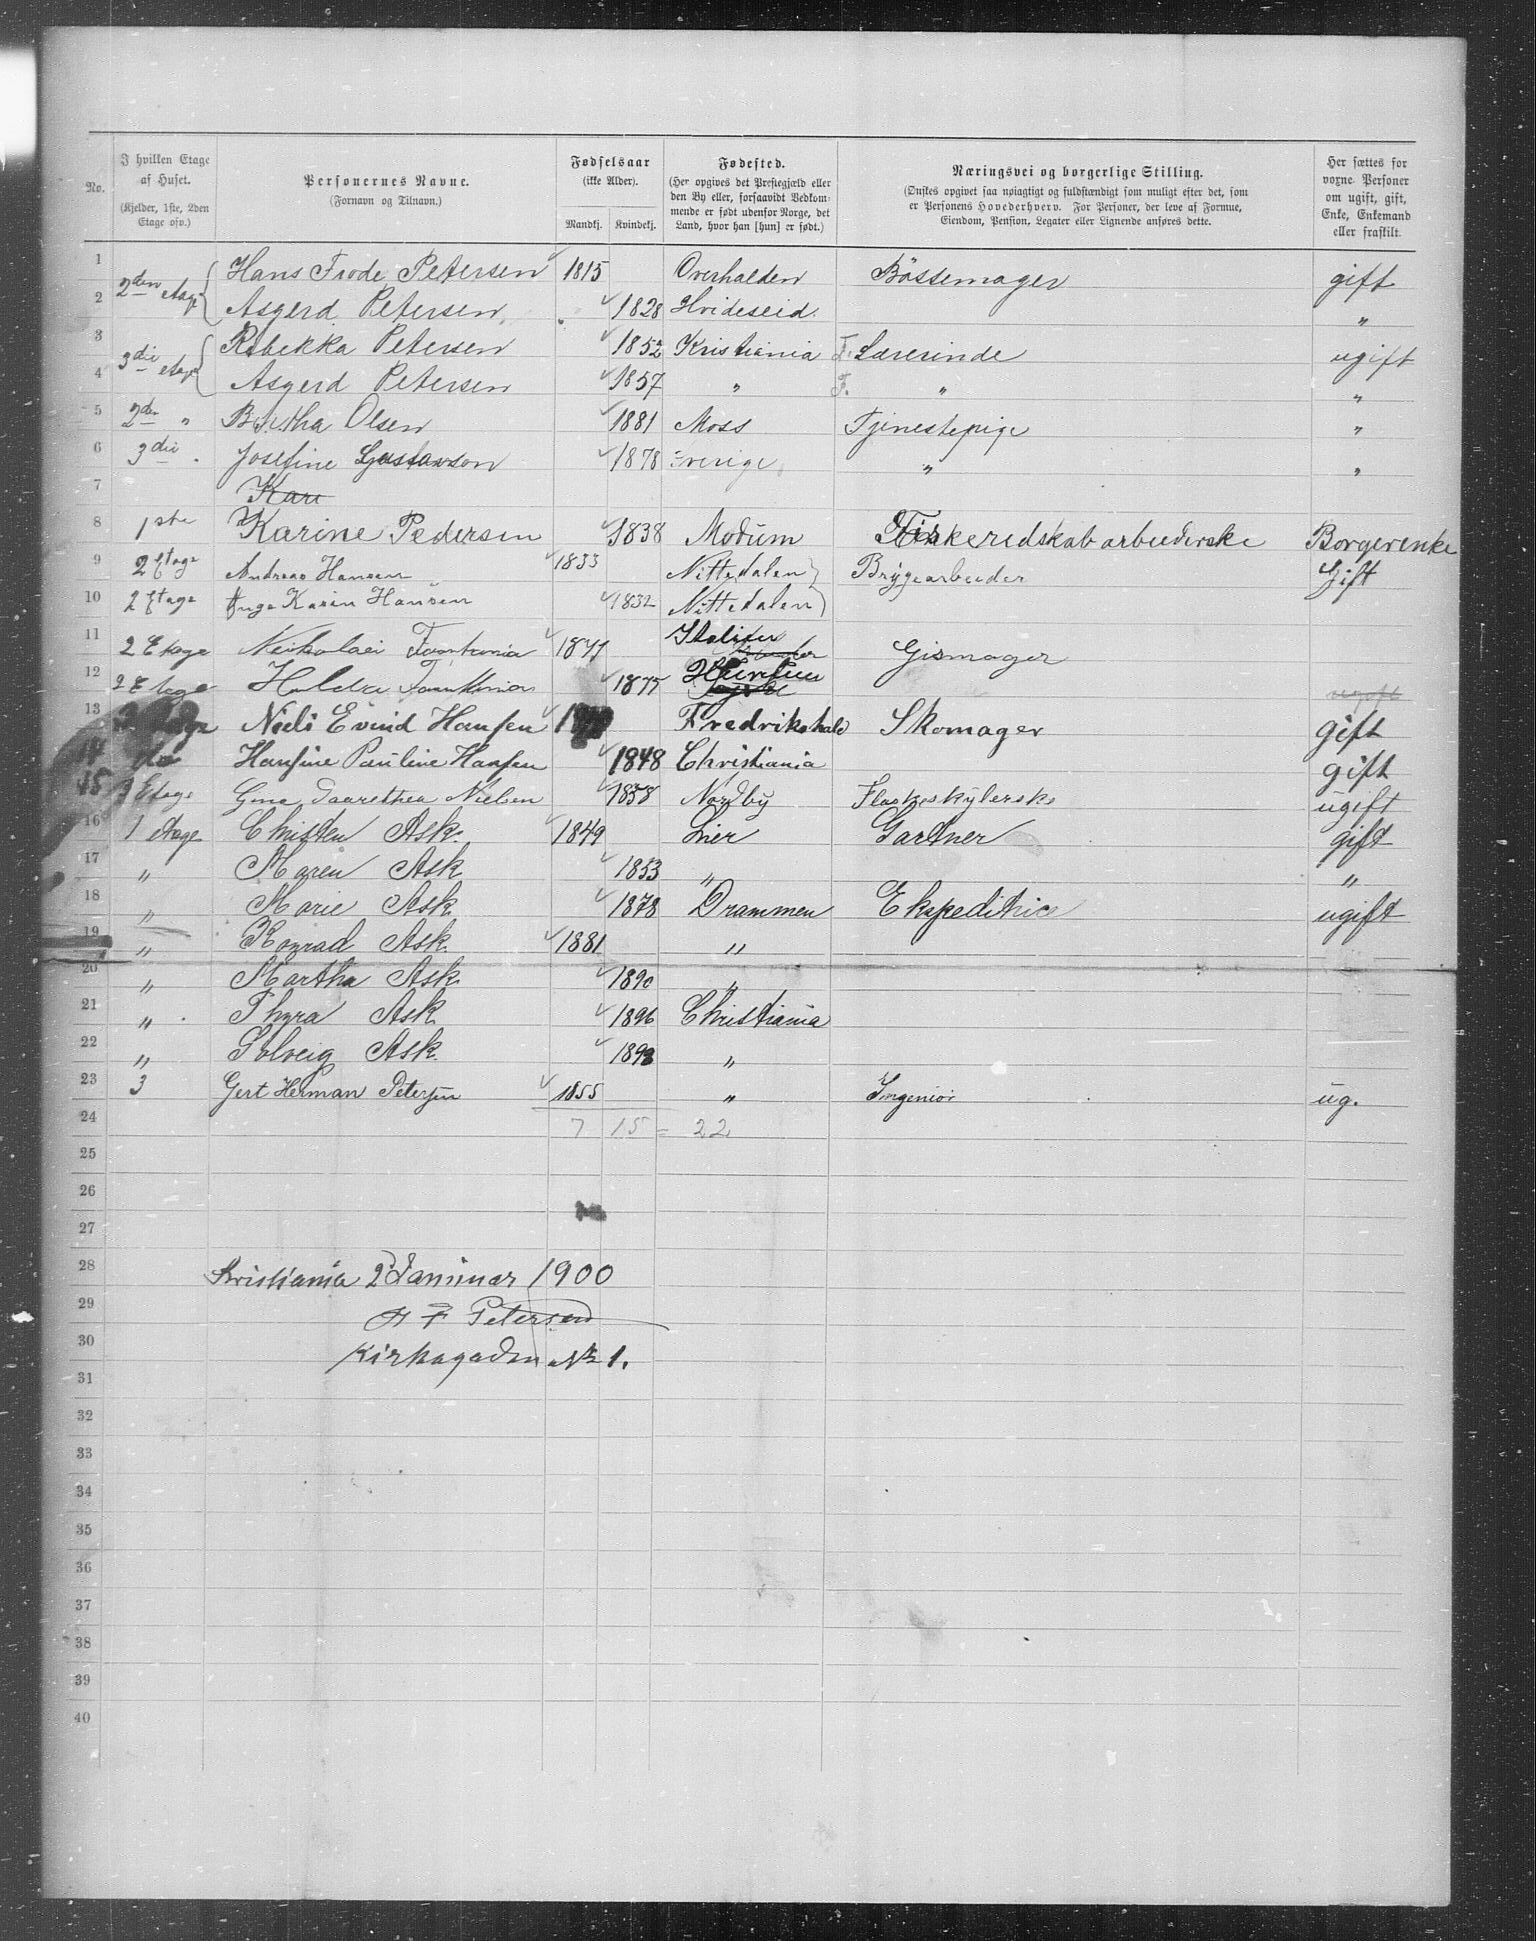 No.
I hvilken Etage af Huset.
(Kjelder, 1ste, 2den Etage osv.)
Personernes Navne.
(Fornavn og Tilnavn.)
Fødselsaar
(ikke Alder).
Mandkj. Kvindekj.
Fødested.
(Her opgives det Prestegjæld eller den By eller, forsaavidt Vedkommende er født udenfor Norge, det Land, hvor han [hun] er født.)
Næringsvei og borgerlige Stilling.
(Ønskes opgivet saa nøiagtigt og fuldstændigt som muligt efter det, som er Personens Hovederhverv. For Personer, der leve af Formue, Eiendom, Pension, Legater eller Lignende anføres dette.
Her sættes for voxne Personer om ugift, gift, Enke, Enkemand eller fraskilt.
1 2den etage Hans Frode Petersen 1815 Overhalden Bössemager gift
2 Asgerd Petersen 1828 Hvideseid "
3 3die etage Rebekka Petersen 1852 Kristiania F. Lærerinde ugift
4 Asgerd Petersen 1857 " F. " "
5 2den " Bertha Olsen 1881 Moss Tjenestepige "
6 3die Josefine Gustavson 1878 Sverige " "
7 Kari
8 1ste Karine Pedersen 1838 Modum Fiskeredskabarbeiderske Borgerenke
9 2 Etage Andreas Hansen 1833 Nittedalen Bryggearbeider Gift
10 2 Etage Inge Karin Hansen 1832 Nittedalen
11 2 Etage Neikolaei Fantania 1877 Italien Gismager
12 2 Etage Hulda Fanttania 1875 ugift
13 Niels Evind Hansen Fredrikshald Skomager gift
14 do Hansine Pauline Hansen 1848 Christiania gift
15 3 Etage Gine Daarethea Nielsen 1858 Nordby Flaskeskylerske ugift
16 1 etage Christen Ask 1849 Lier Gartner gift
17 " Maren Ask 1853 " "
18 " Marie Ask 1878 Drammen Ekspeditrice ugift
19 " Konrad Ask 1881 "
20 " Martha Ask 1890 "
21 " Thyra Ask 1896 Christiania
22 " Solveig Ask 1898 "
23 3 Gert Herman Petersen 1855 " Ingeniör ug.
24 7 15 = 22
25
26
27
28 Kristiania 2 Januar 1900
29 H F Petersen
30 Kirkegaden № 1.
31
32
33
34
35
36
37
38
39
40